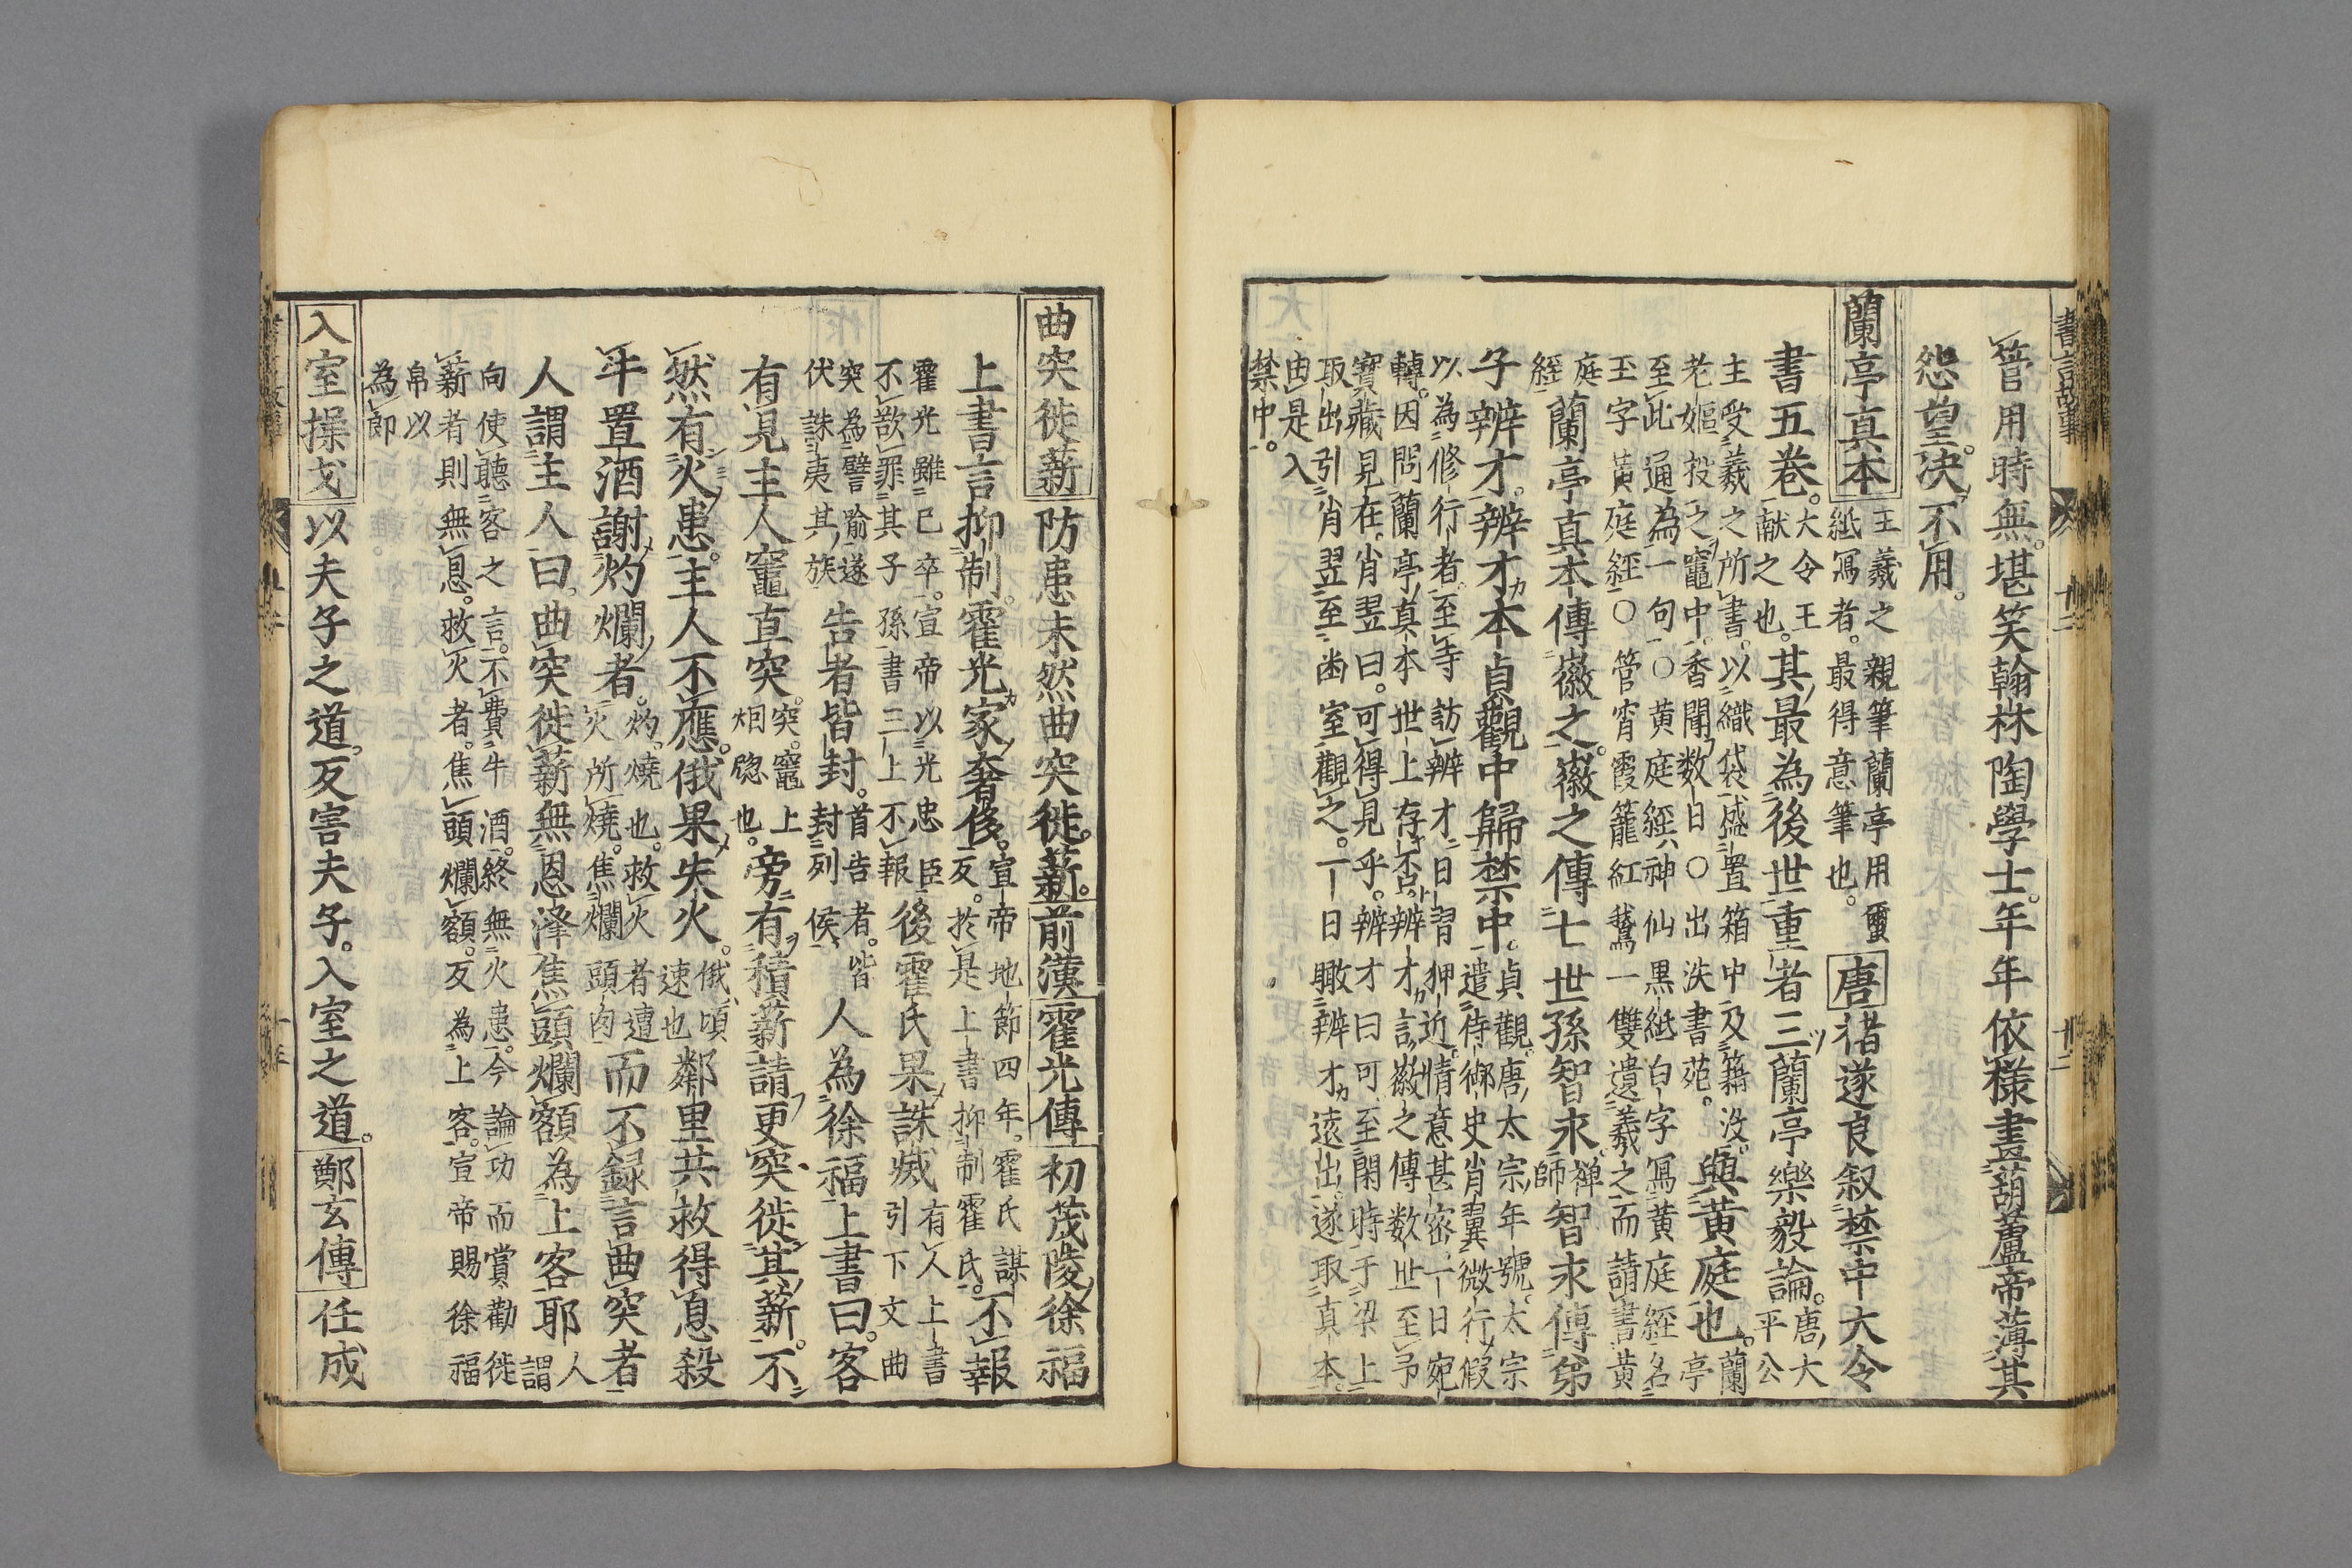 書言故事
管用時無。堪笑翰林陶學士。年年依樣畫葫蘆帝薄其
怨望。决不用。
蘭亭真本
王羲之親筆蘭亭用蠒
紙冩者。最得意筆也。
唐禇遂良叙禁中大令
書五巻。
大令王
献之也。
其最為後世重者三蘭亭樂毅論。
唐大
平公
主受羲之所書。以織袋盛置箱中及籍没。
老嫗投之竈中。香聞数日○出法書苑。
與黄庭也。
蘭
亭
至此通為一句○黄庭經神仙黒紙白字冩黄庭經名
玉字黄庭經○管宵霞籠紅鵞一雙遺羲之而請書黄
庭
經
蘭亭真本傳徽之。徽之傳七世孫智永。
禅
師
智永傳弟
子辨才。辨才本貞觀中歸禁中。
貞觀。唐太宗年號。太宗
遣侍御史肖翼微行假
以為修行者。至寺訪辨才日習狎近。情意甚密。一日宛
轉。因問蘭亭真本世上存否。辨才言徽之傳数世至予
寳藏見在。肖翌曰。可得見乎。辨才曰可至閑時于梁上
取出引肖翌至凾室觀之。一日瞰辨才遠出。遂取真本。
由是入
禁中。
曲突徙薪
防患未然曲突徙。薪。前漢霍光傳初茂陵徐福
上書言抑制霍光家奢侈。
宣帝地節四年。霍氏謀
反。於是上書抑制霍氏。
不報
霍光雖已卒。宣帝以光忠臣
不歆罪其子孫書三上不報
後霍氏果誅㓕
有人上書
引下文曲
突為譬喻遂
伏誅夷其族
告者皆封。
首告者。皆
封列侯
人為徐福上書曰。客
有見主人竈直突。
突。竈上
烟䆫也。
旁有積薪請更突徙其薪。不
然有火患。主人不應。俄果失火。
俄頃
速也
鄰里共救得息殺
牛置酒謝灼爛者。
灼。燒也。救火者遭
火所燒。焦爛頭肉
而不録言曲突者
人謂主人曰。曲突徙薪無恩澤焦頭爛額為上客耶
人
謂
向使聽客之言。不費牛酒。終無火患。今論功而賞勸徙
薪者則無息。救火者。焦頭爛額。反為上客。宣帝賜徐福
帛以
為郎
入室操戈
以夫子之道。反害夫子。入室之道。鄭玄傳任成